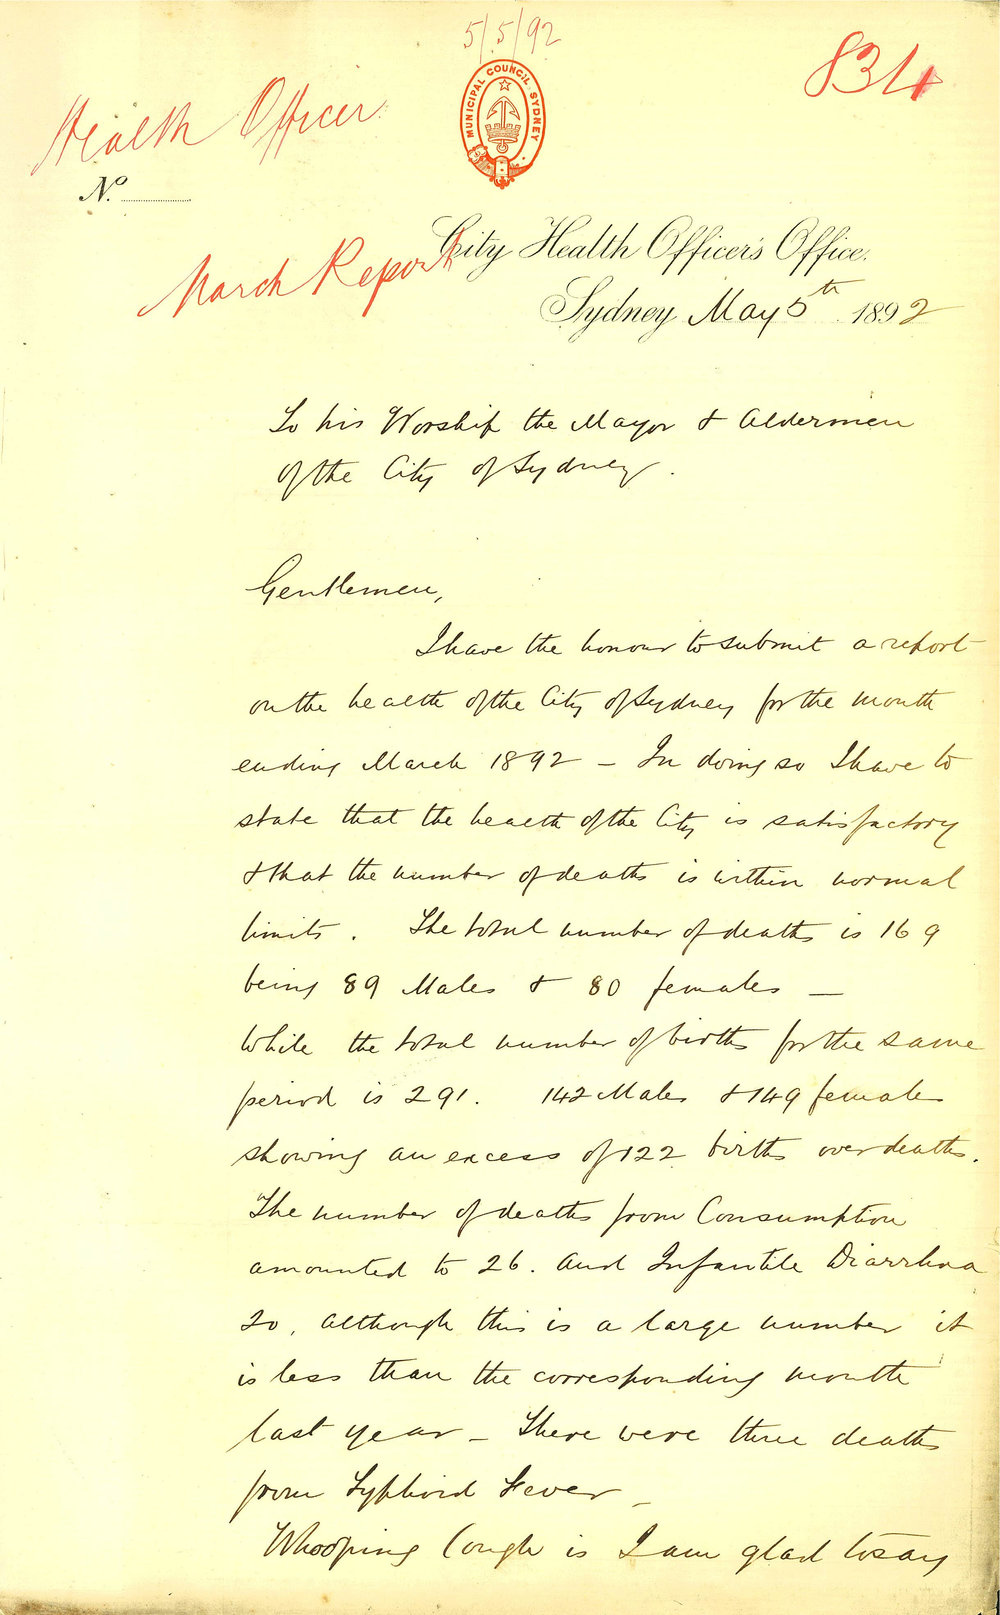 5/5/92
834
MUNICIPAL COUNCIL SYDNEY
Health Officer.
No.
City Health Officer's Office.
March Report
Sydney May 5th 1892
To his Worship the Mayor & Aldermen
of the City of Sydney.
Gentlemen,
I have the honour to submit a report
on the health of the City of Sydney for the month
ending March 1892 – In doing so I have to
state that the health of the City is satisfactory
& that the number of deaths is within normal
limits. The total number of deaths is 169
being 89 Males & 80 females –
While the total number of births for the same
period is 291. 142 Males & 149 females
showing an excess of 122 births over deaths.
The number of deaths from Consumption
amounted to 26. and Infantile Diarrhoea
20, although this is a large number it
is less than the corresponding month
last year – There were three deaths
from Typhoid Fever –
Whooping Cough is I am glad to say